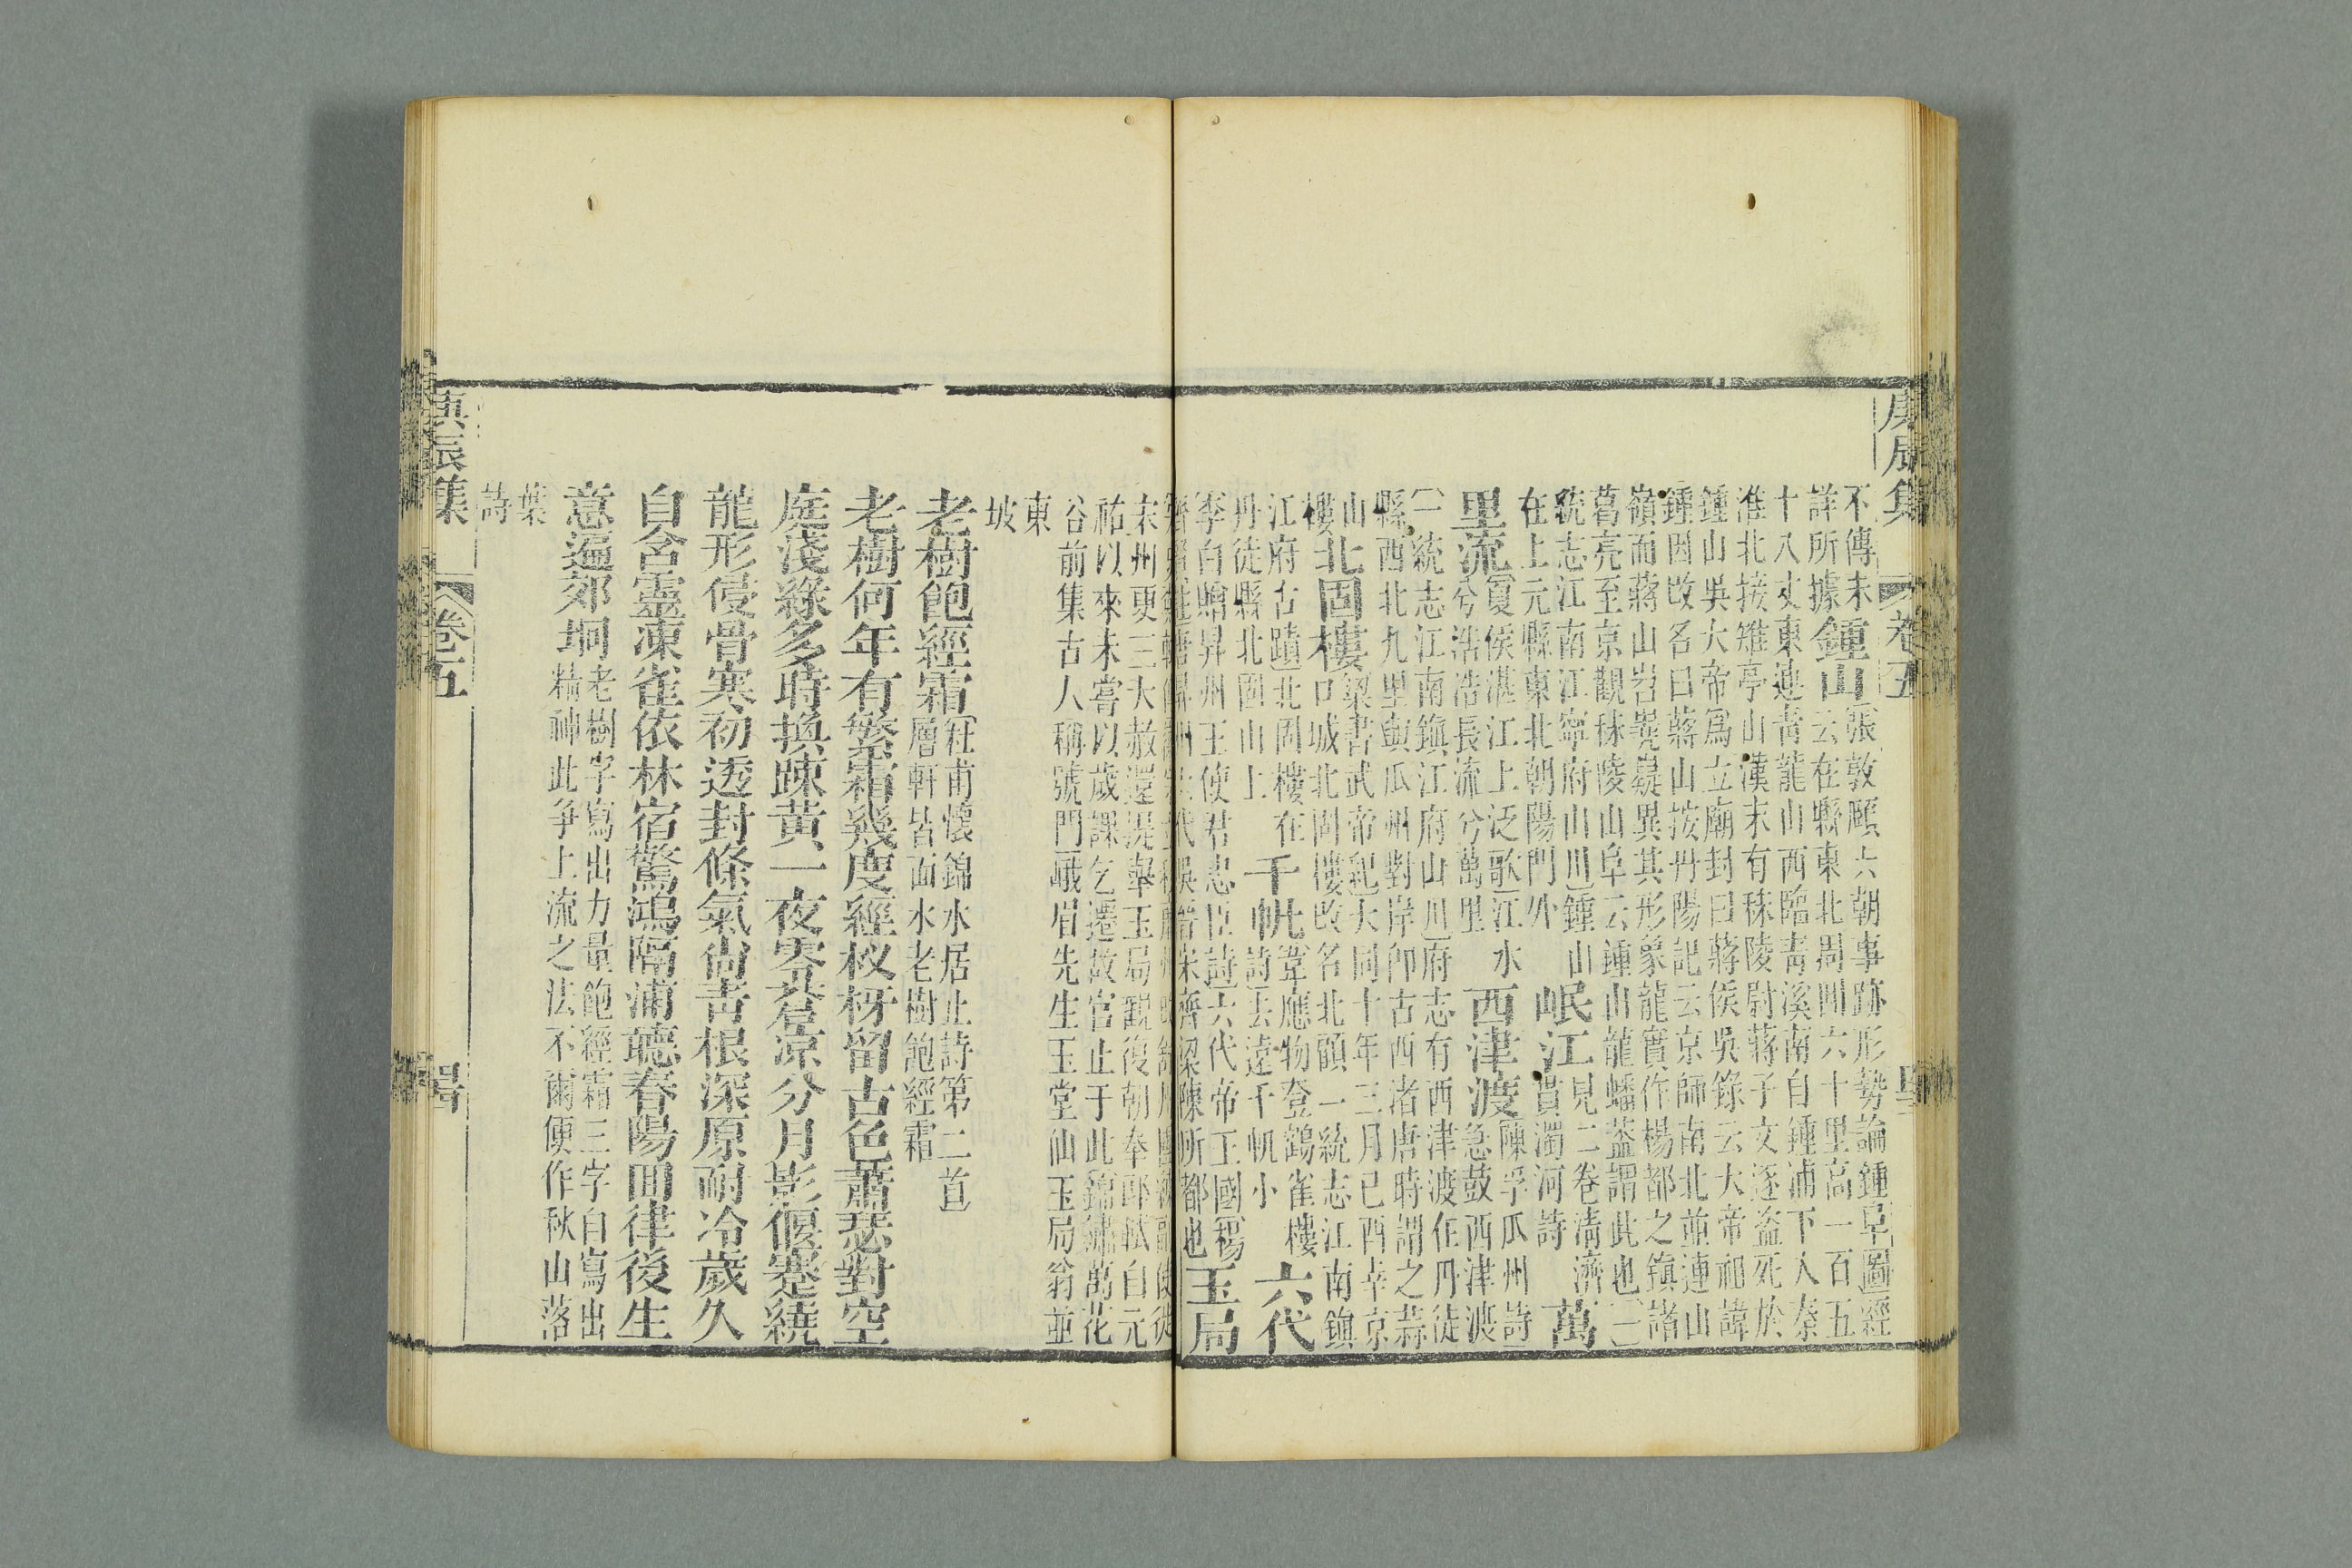 庚辰集 卷五
不傳未
詳所據
鍾山
張敦頤六朝事跡形勢論鍾阜圖經
云在縣東北周囘六十里高一百五
十八丈東連青龍山西臨青溪南自鍾浦下入秦
淮北接雉亭山漢末有秣陵尉蔣子文逐盜死於
鍾山吳大帝爲立廟封曰蔣侯吳錄云大帝祖諱
鍾因改名曰蔣山按丹陽記云京師南北並連山
嶺而蔣山岧嶤嶷異其形象龍實作楊都之鎮諸
葛亮至京觀秣陵山阜云鍾山龍蟠蓋謂此也一
統志江南江寧府山川鍾山
在上元縣東北朝陽門外
岷江
見二卷淸濟
貫濁河詩
萬
里流
夏侯湛江上泛歌江水
兮浩浩長流兮萬里
西津渡
陳孚瓜州詩
急鼓西津渡
一統志江南鎮江府山川府志有西津渡在丹徒
縣西北九里與瓜州對岸卽古西渚唐時謂之蒜
山
北固樓
梁書武帝紀大同十年三月己酉幸京
口城北固樓改名北顧一統志江南鎮
江府古蹟北固樓在
丹徒縣北固山上
千帆
韋應物登鸛雀樓
詩去遠千帆小
六代
李白贈昇州王使君忠臣詩六代帝王國楊
齊賢註
代吳晉宋齊梁陳所都也
玉局
宋
州更三大赦還提舉玉局觀復朝奉郎軾自元
祐以來未嘗以歲課乞遷故官止于此錦繡萬花
谷前集古人稱號門峨眉先生玉堂仙玉局翁並
東
坡
老樹飽經霜
杜甫懷錦水居止詩第二首
層軒皆面水老樹飽經霜
老樹何年有繁霜幾度經杈枒留古色蕭瑟對空
庭淺綠多時換踈黃一夜零蒼凉分月影偃蹇繞
龍形侵骨寒初透封條氣尙青根深原耐冷歲久
自含靈凍雀依林宿驚鴻隔浦聽春陽囘律後生
意遍郊坰
老樹字寫出力量飽經霜三字自寫出
精神此爭上流之法不爾便作秋山落
葉
詩
庚辰集 卷五